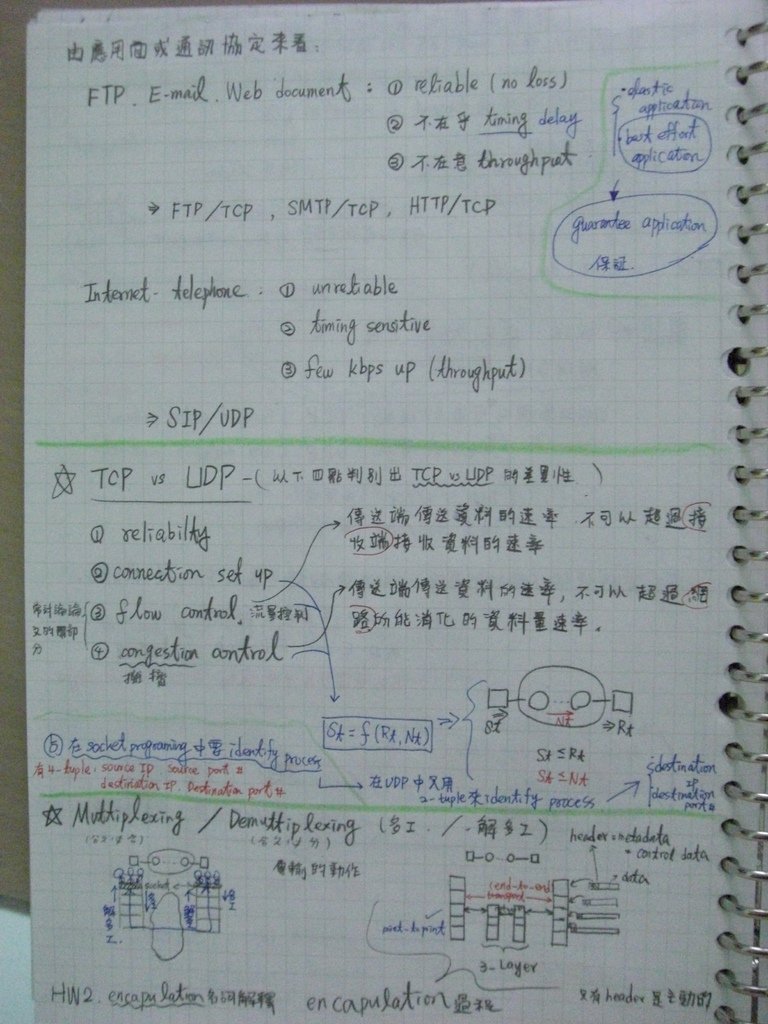 由應用面或通訊協定來看:
FTP. E-mail. Web document: ① reliable (no loss)
② 不在乎 timing delay
③ 不在意 throughput
• elastic application
• best effort application
guarantee application
保証
⇒ FTP/TCP, SMTP/TCP, HTTP/TCP
Internet-telephone: ① unreliable
② timing sensitive
③ few kbps up (throughput)
⇒ SIP/UDP
☆ TCP vs UDP -(以下四點判別出 TCP vs UDP 的差異性)
① reliabilty
② connection set up
③ flow control. 流量控制
④ congestion control
擁擠
傳送端傳送資料的速率. 不可以超過接
收端接收資料的速率
傳送端傳送資料的速率, 不可以超過網
路所能消化的資料量速率.
St = f(Rt, Nt)
St
Nt
Rt
St ≤ Rt
St ≤ Nt
⑤ 在 socket programing 中要 identify process
有 4-tuple: source IP source port #
destination IP. Destination port #
在UDP中只用
2-tuple來identify process
destination IP
destination port #
☆ Multiplexing / Demultiplexing (多工 / 解多工)
傳輸的動作
socket
解多工
多工
解多工
多工
header = metadata
• control data
data
(end-to-end transport)
point-to-point
3-Layer
HW2. encapulation名詞解釋
encapulation 過程
只有header是主動的